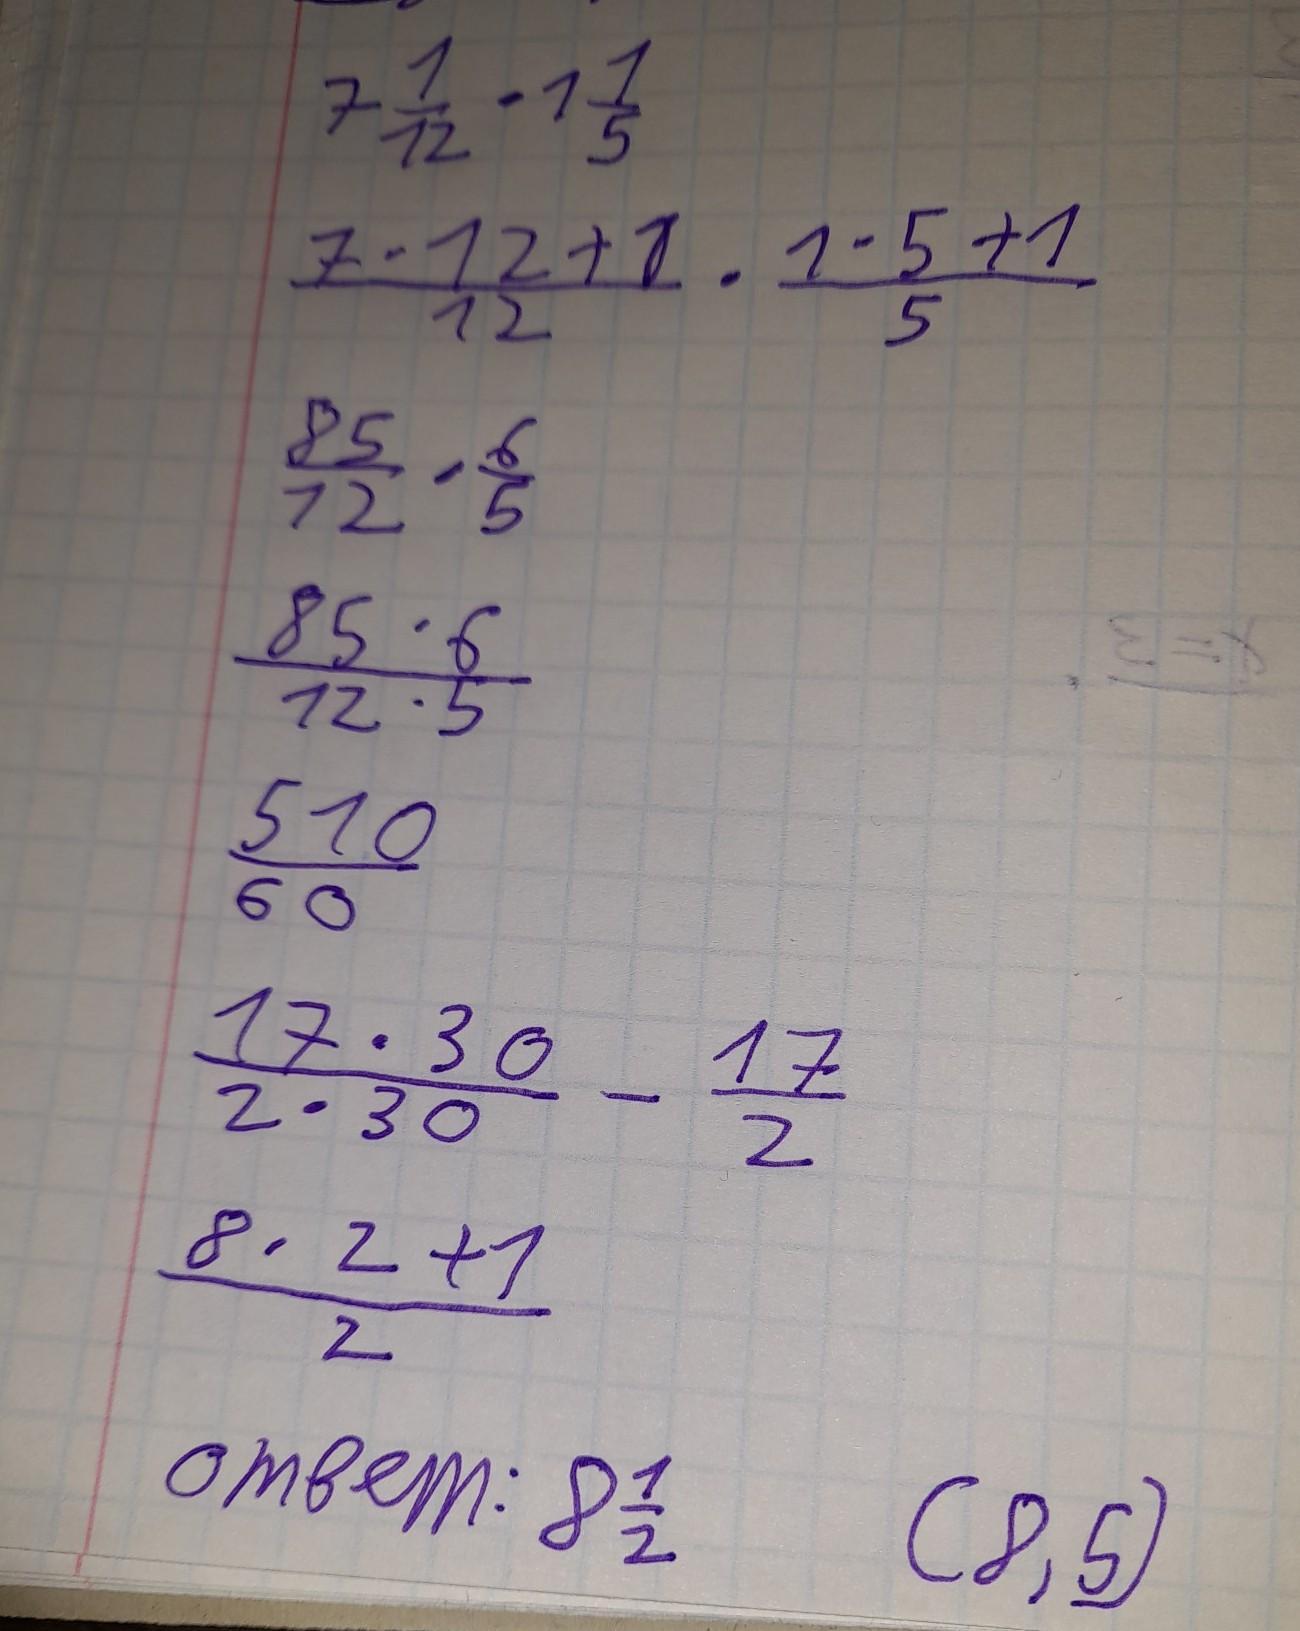 7 1/12 · 1 1/5
(7·12+1)/12 · (1·5+1)/5
85/12 · 6/5
(85·6)/(12·5)
510/60
(17·30)/(2·30) - 17/2
(8·2+1)/2
ответ: 8 1/2 (8,5)